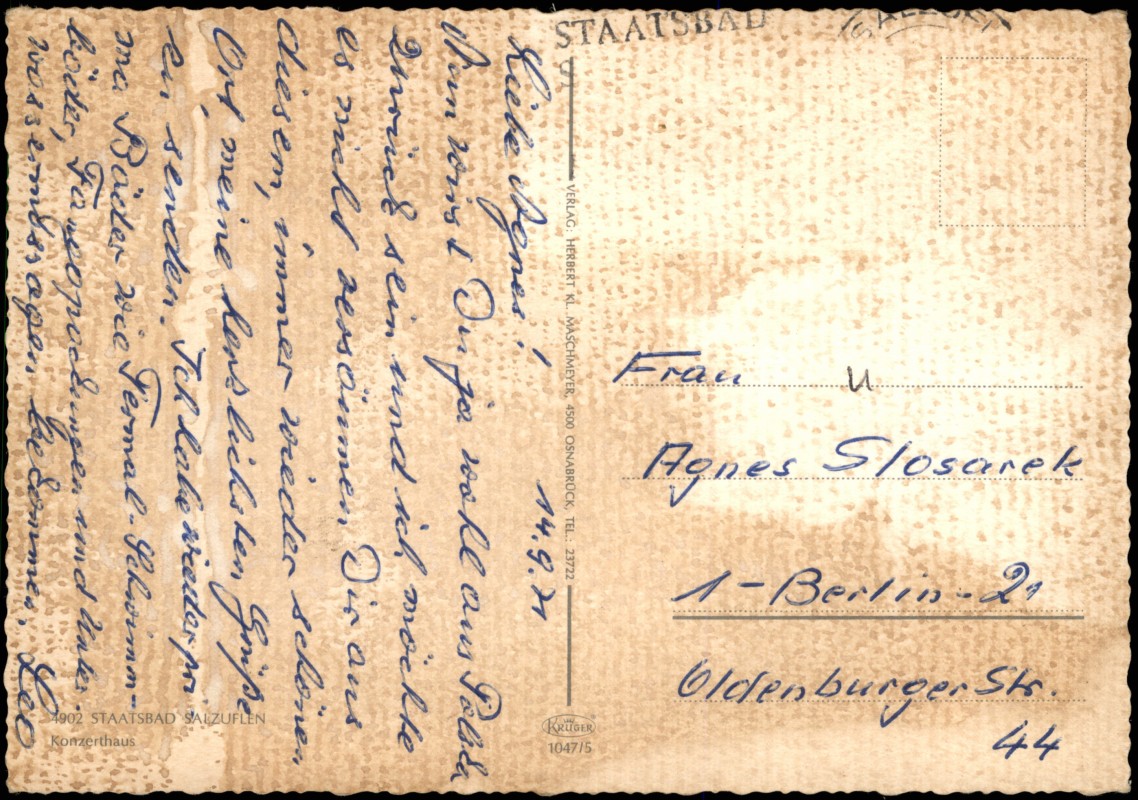 STAATSBAD
14.9.71
Liebe Agnes!
Nun wirst Du ja wohl aus
Zurück sein und ich möchte
es nicht versäumen Dir aus
diesem, immer wieder schönen
Ort, meine herzlichsten Grüße
zu senden. Ich habe wieder pri-
ma Bäder wie Termal-Schwimm-
bäder, Fangopackungen und Unter-
wassermassagen bekommen. Leo
4902 STAATSBAD SALZUFLEN
Konzerthaus
VERLAG: HERBERT KL. MASCHMEYER, 4500 OSNABRÜCK, TEL.: 23722
KRÜGER
1047/5
Frau u
Agnes Slosarek
1-Berlin-21
Oldenburger Str.
44